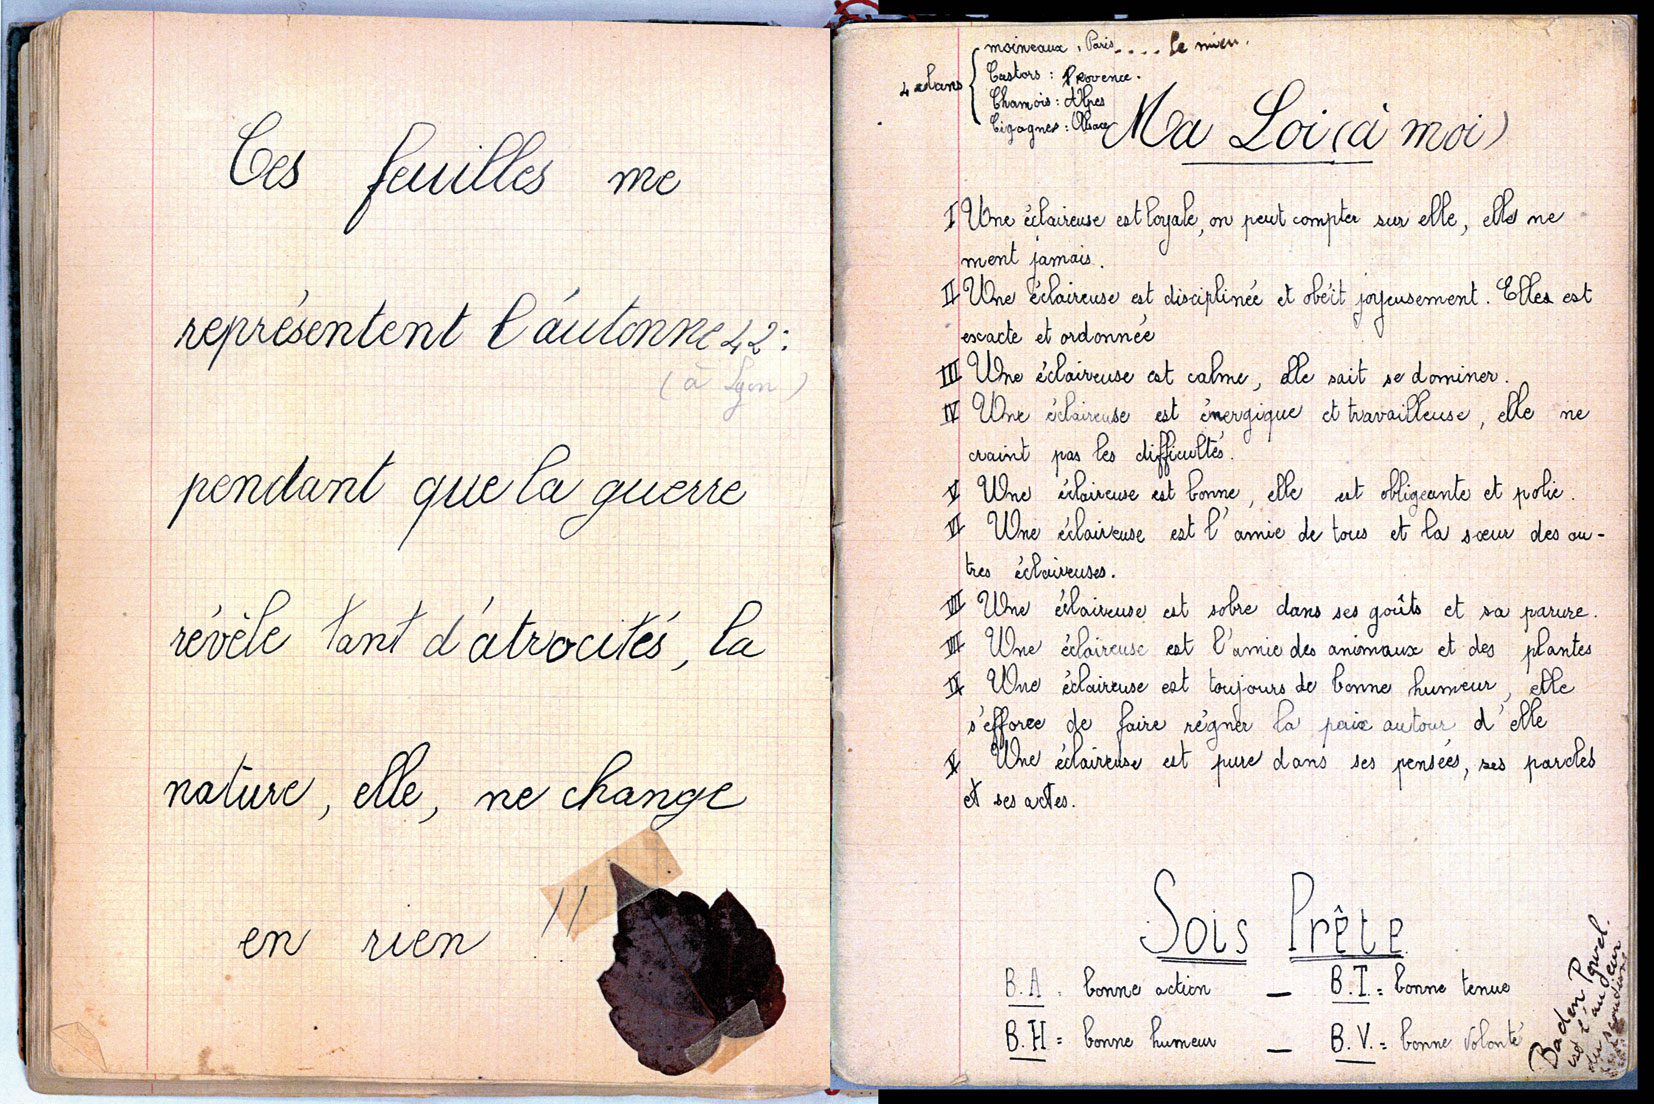 Ces feuilles me
représentent l'áutonne 42:
(à Lyon)
pendant que la guerre
révèle tant d'atrocités, la
nature, elle, ne change
en rien !!
4 clans
moineaux, Paris.... le mien.
Castors : Provence.
Chamois : Alpes
Cigognes : Alsace
Ma Loi (à moi)
I Une éclaireuse est loyale, on peut compter sur elle, elle ne
ment jamais.
II Une éclaireuse est disciplinée et obéit joyeusement. Elles est
exacte et ordonnée
III Une éclaireuse est calme, elle sait se dominer.
IV Une éclaireuse est énergique et travailleuse, elle ne
craint pas les difficultés.
V Une éclaireuse est bonne, elle est obligeante et polie.
VI Une éclaireuse est l'amie de tous et la sœur des au-
tres éclaireuses.
VII Une éclaireuse est sobre dans ses goûts et sa parure.
VIII Une éclaireuse est l'amie des animaux et des plantes
IX Une éclaireuse est toujours de bonne humeur, elle
s'efforce de faire régner la paix autour d'elle
X Une éclaireuse est pure dans ses pensées, ses paroles
et ses actes.
Sois Prête
B.A. bonne action — B.T. = bonne tenue
B.H = bonne humeur — B.V. = bonne volonté
Baden Powel.
est l'audeur
du scoutisme